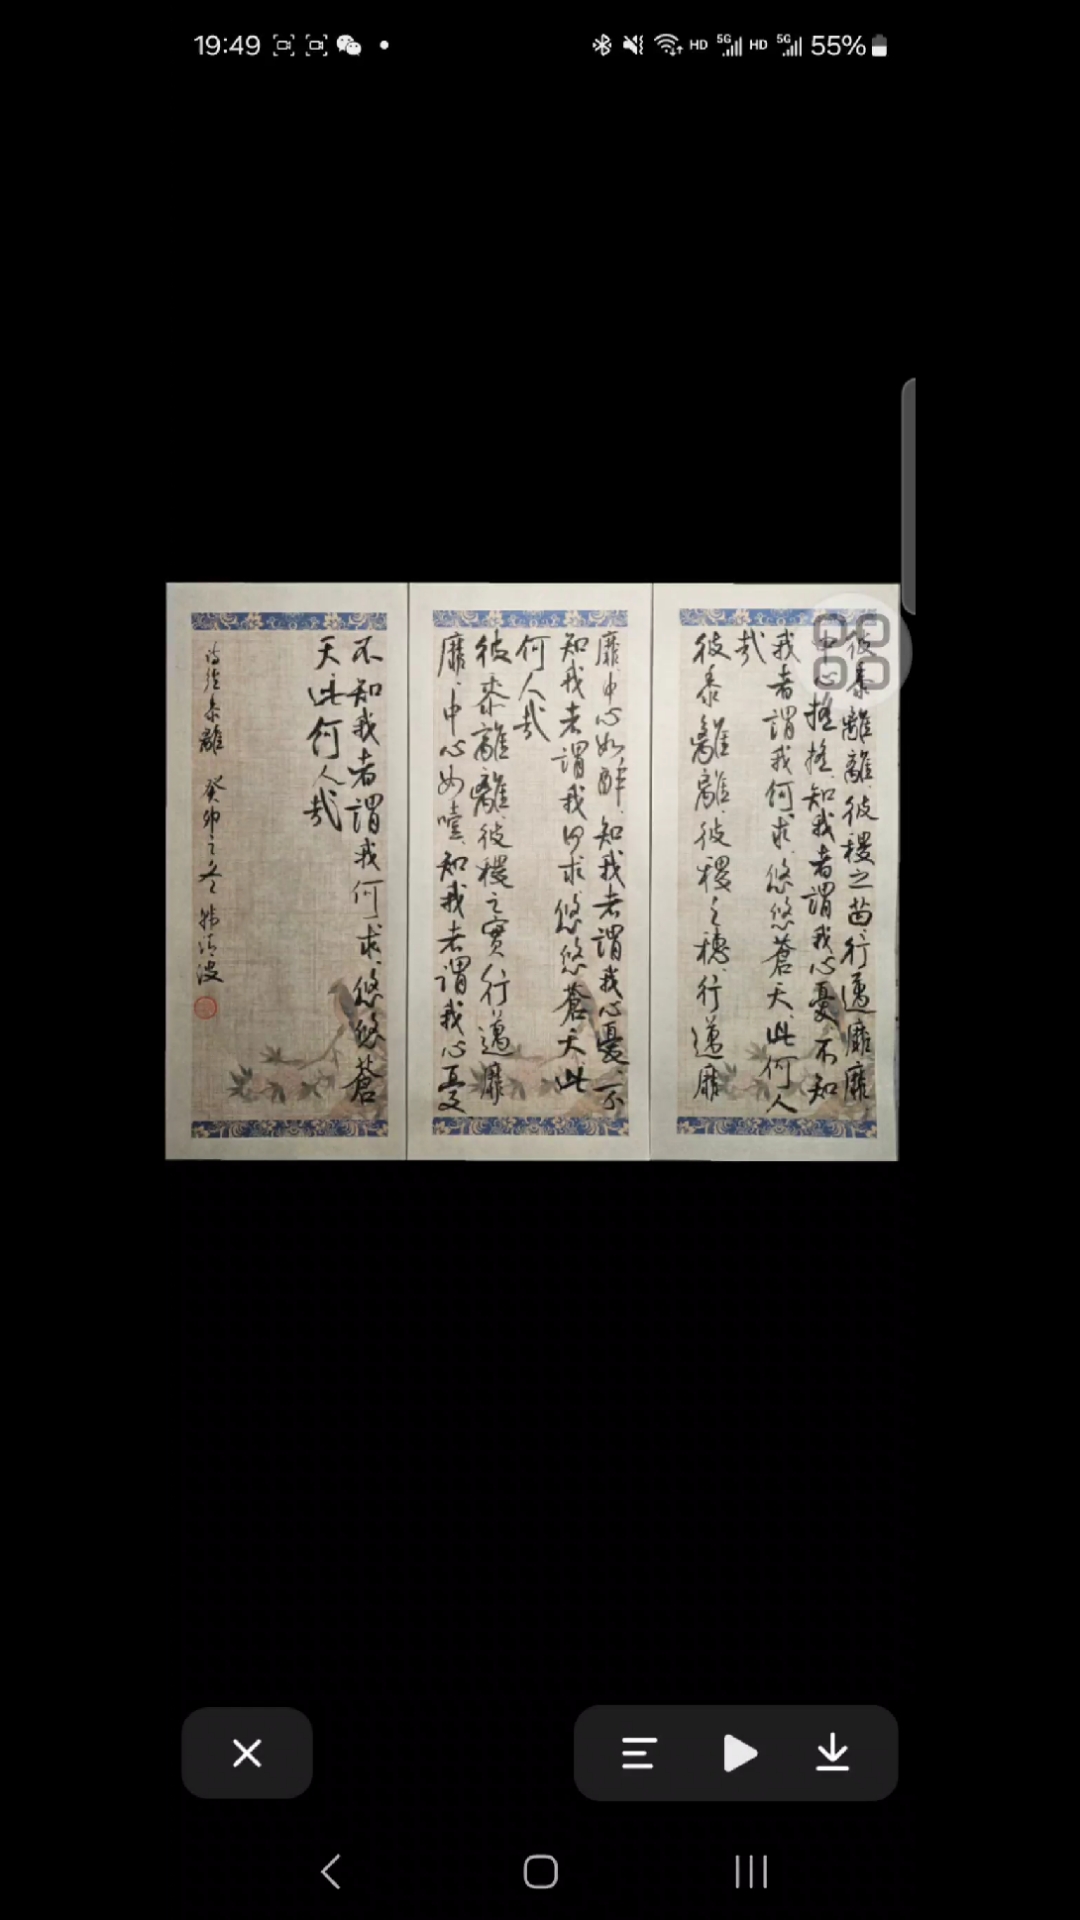 19:49
HD 5G HD 5G 55%
彼黍離離彼稷之苗行邁靡靡
中心搖搖知我者謂我心憂不知
我者謂我何求悠悠蒼天此何人
哉
彼黍離離彼稷之穗行邁靡
靡中心如醉知我者謂我心憂不
知我者謂我何求悠悠蒼天此
何人哉
彼黍離離彼稷之實行邁靡
靡中心如噎知我者謂我心憂
不知我者謂我何求悠悠蒼
天此何人哉
詩經黍離 癸卯之冬 韩清波